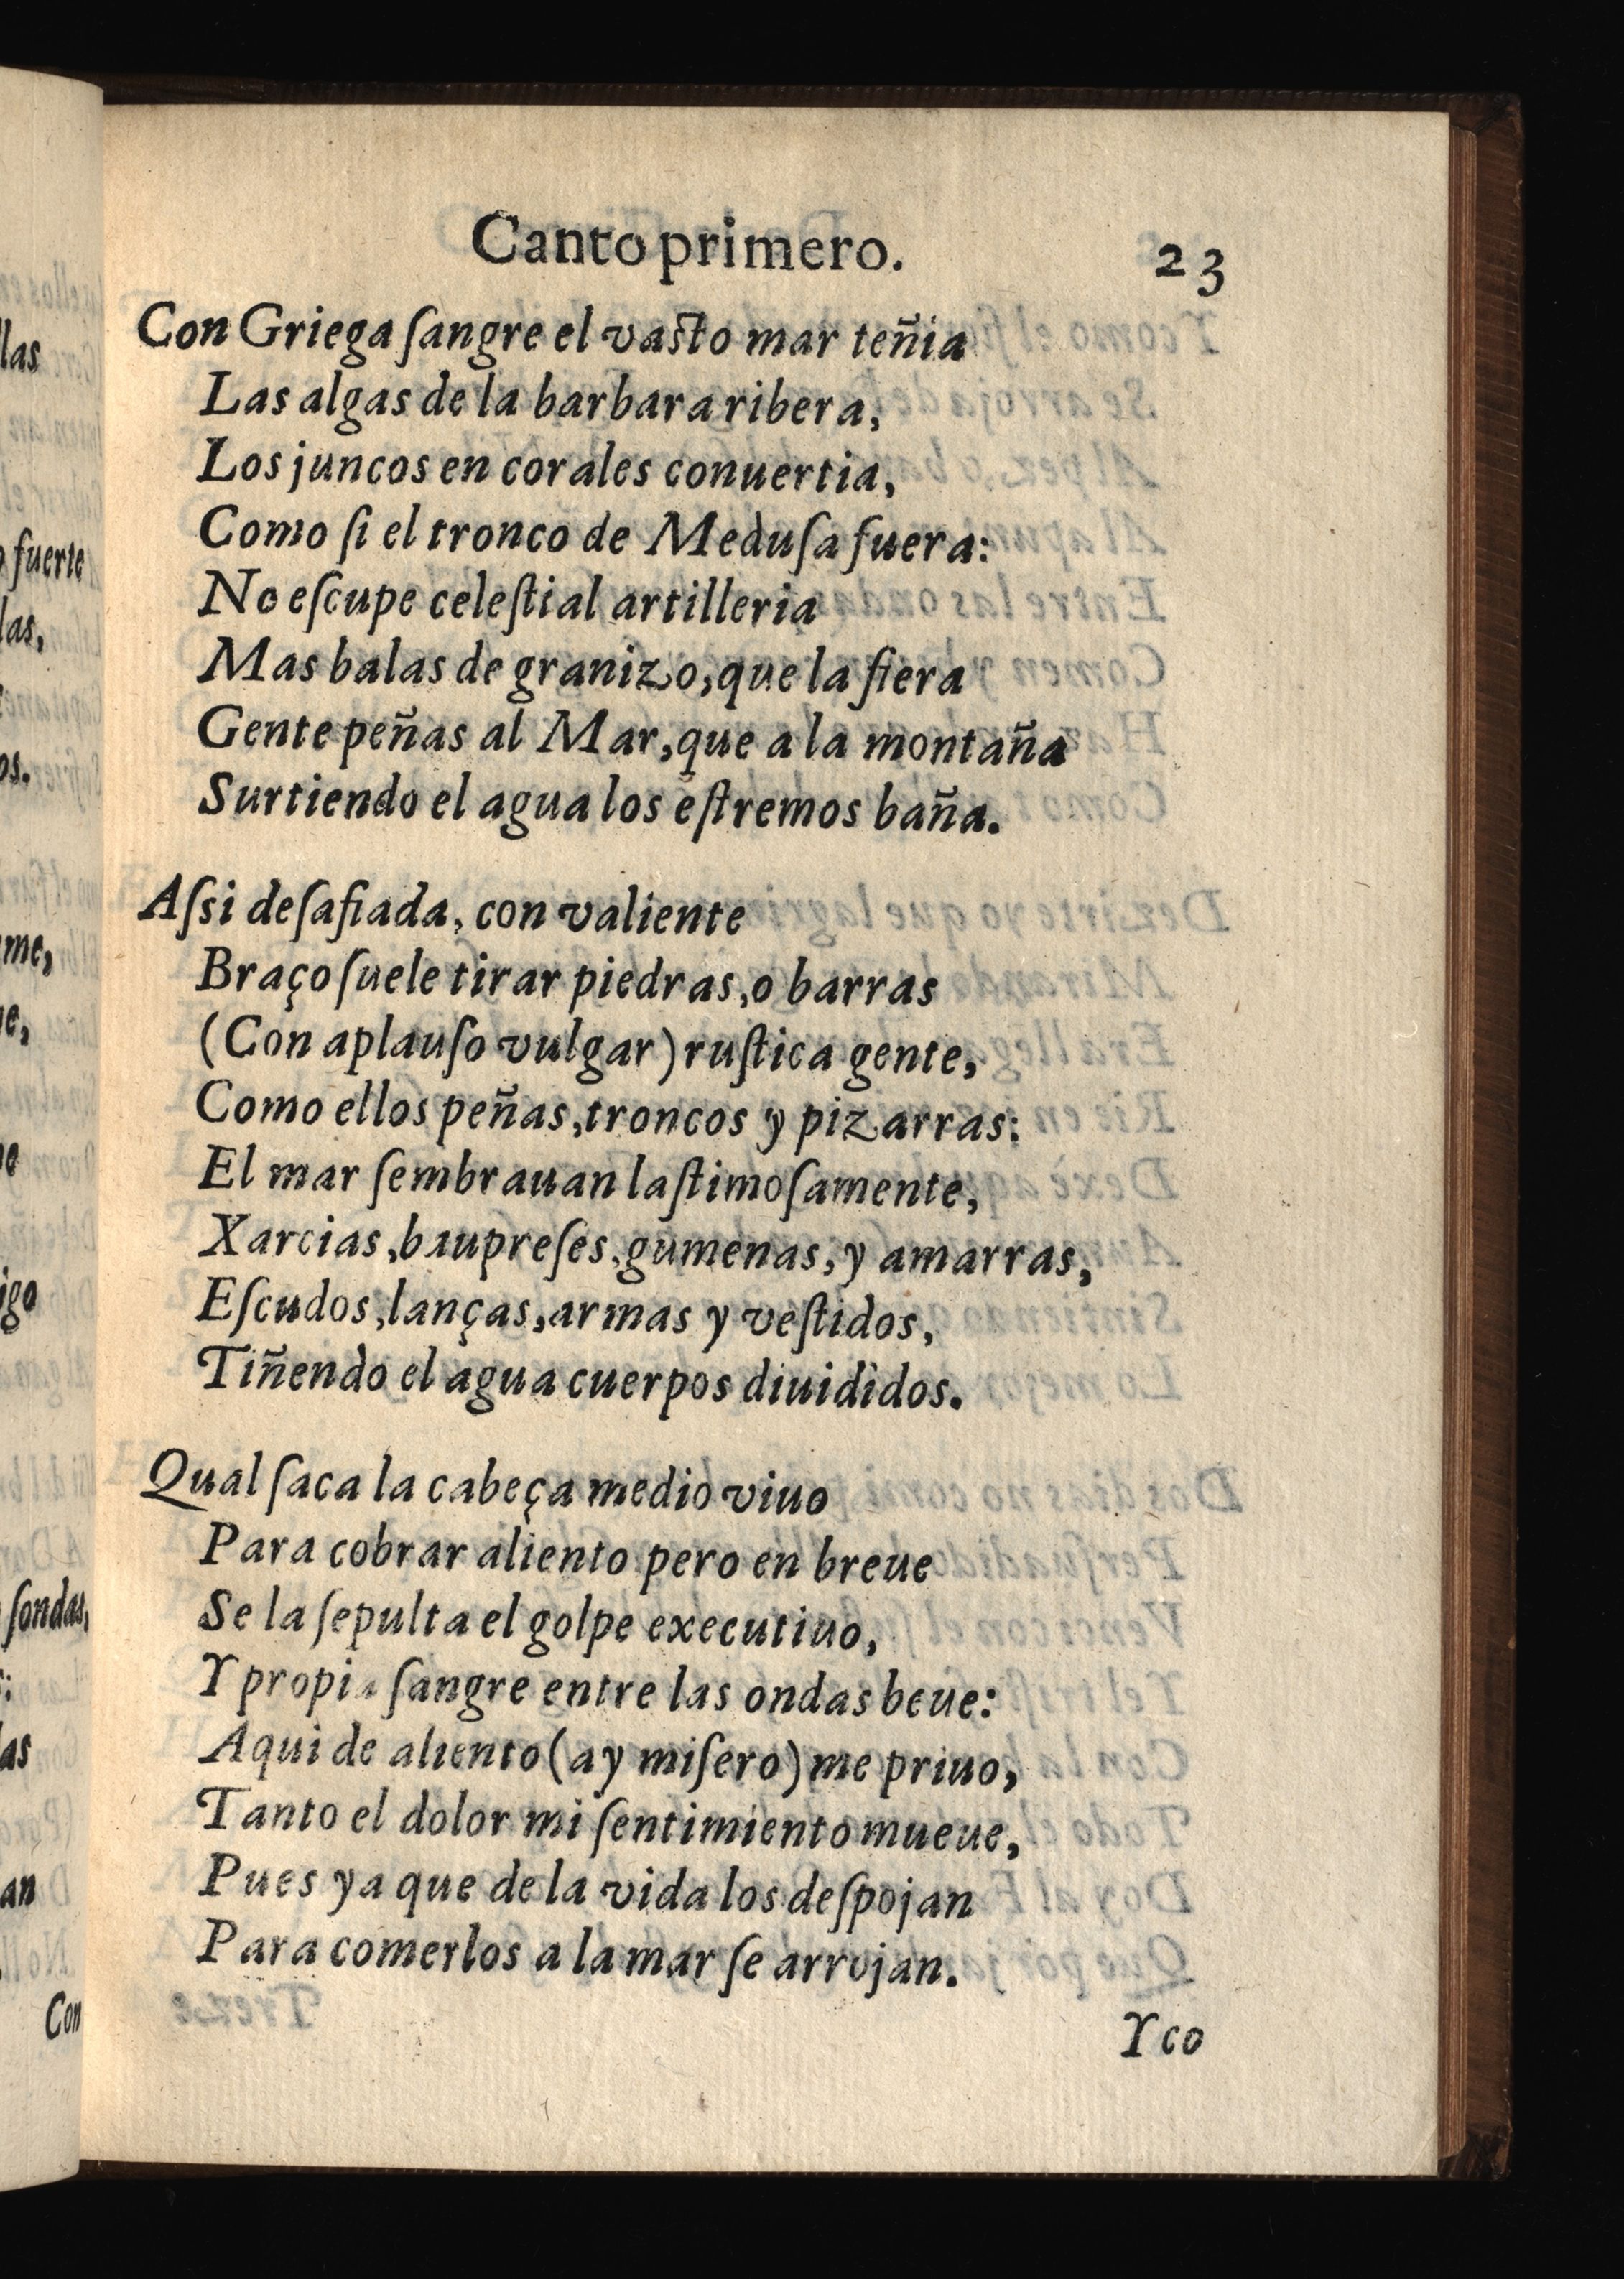 Canto primero. 23
Con Griega ſangre el vasto mar teñia
Las algas de la barbara ribera,
Los juncos en corales conuertia,
Como ſi el tronco de Meduſa fuera:
No eſcupe celeſtial artilleria
Mas balas de granizo, que la fiera
Gente peñas al Mar, que a la montaña
Surtiendo el agua los eſtremos baña.
Aſsi deſafiada, con valiente
Braço ſuele tirar piedras, o barras
(Con aplauſo vulgar) ruſtica gente,
Como ellos peñas, troncos y pizarras:
El mar ſembrauan laſtimoſamente,
Xarcias, baupreſes, gumenas, y amarras,
Eſcudos, lanças, armas y veſtidos,
Tiñendo el agua cuerpos diuididos.
Qual ſaca la cabeça medio viuo
Para cobrar aliento pero en breue
Se la ſepulta el golpe executiuo,
Y propia ſangre entre las ondas beue:
Aqui de aliento (ay miſero) me priuo,
Tanto el dolor mi ſentimiento mueue,
Pues ya que de la vida los deſpojan
Para comerlos a la mar ſe arrojan.
Y co